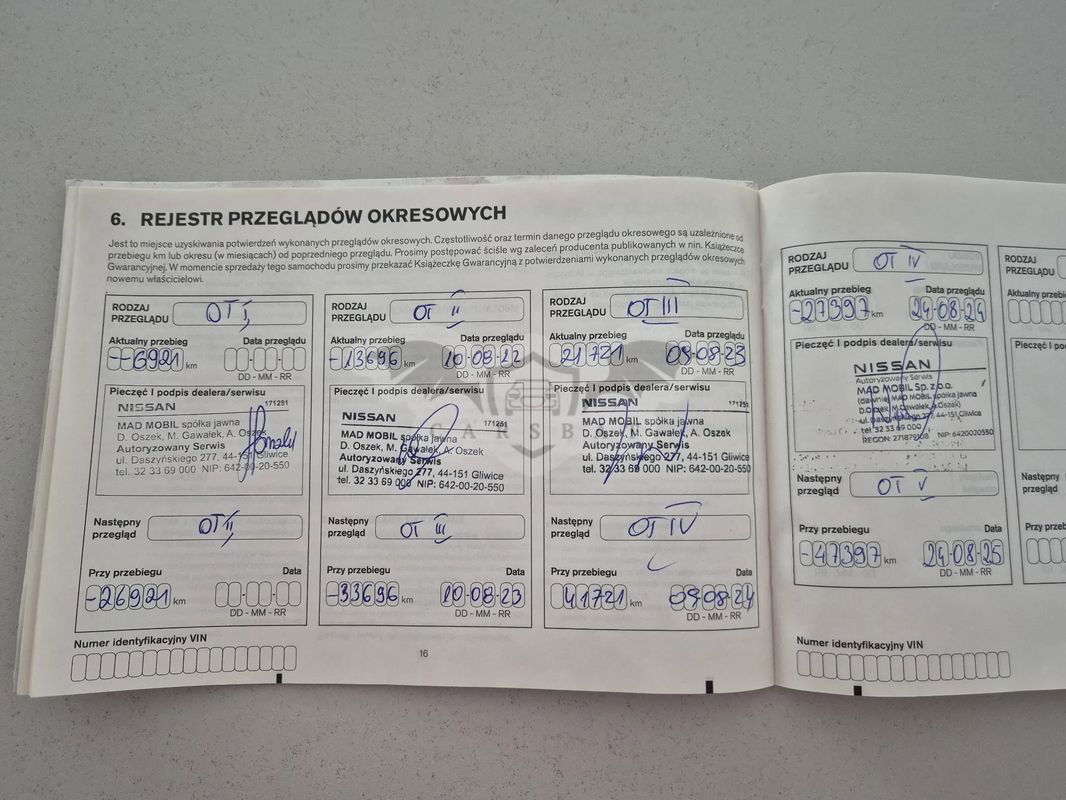 6. REJESTR PRZEGLĄDÓW OKRESOWYCH
Jest to miejsce uzyskiwania potwierdzeń wykonanych przeglądów okresowych. Częstotliwość oraz termin danego przeglądu okresowego są uzależnione od
przebiegu km lub okresu (w miesiącach) od poprzedniego przeglądu. Prosimy postępować ściśle wg zaleceń producenta publikowanych w nin. Książeczce
Gwarancyjnej. W momencie sprzedaży tego samochodu prosimy przekazać Książeczkę Gwarancyjną z potwierdzeniami wykonanych przeglądów okresowych
nowemu właścicielowi.
RODZAJ
PRZEGLĄDU OT I
Aktualny przebieg Data przeglądu
--6921 km
DD - MM - RR
Pieczęć I podpis dealera/serwisu
NISSAN 171251
MAD MOBIL spółka jawna
D. Oszek, M. Gawałek, A. Oszek
Autoryzowany Serwis
ul. Daszyńskiego 277, 44-151 Gliwice
tel. 32 33 69 000 NIP: 642-00-20-550
Następny
przegląd OT II
Przy przebiegu Data
-26921 km
DD - MM - RR
RODZAJ
PRZEGLĄDU OT II
Aktualny przebieg Data przeglądu
-13696 km 10-08-22
DD - MM - RR
Pieczęć I podpis dealera/serwisu
NISSAN 171251
MAD MOBIL spółka jawna
D. Oszek, M. Gawałek, A. Oszek
Autoryzowany Serwis
ul. Daszyńskiego 277, 44-151 Gliwice
tel. 32 33 69 000 NIP: 642-00-20-550
Następny
przegląd OT III
Przy przebiegu Data
-33696 km 10-08-23
DD - MM - RR
RODZAJ
PRZEGLĄDU OT III
Aktualny przebieg Data przeglądu
21721 km 09-08-23
DD - MM - RR
Pieczęć I podpis dealera/serwisu
NISSAN 171251
MAD MOBIL spółka jawna
D. Oszek, M. Gawałek, A. Oszek
Autoryzowany Serwis
ul. Daszyńskiego 277, 44-151 Gliwice
tel. 32 33 69 000 NIP: 642-00-20-550
Następny
przegląd OT IV
Przy przebiegu Data
41721 km 09-08-24
DD - MM - RR
CARSB
Numer identyfikacyjny VIN
16
RODZAJ
PRZEGLĄDU OT IV
Aktualny przebieg Data przeglądu
-27397 km 24-08-24
DD - MM - RR
Pieczęć I podpis dealera/serwisu
NISSAN
Autoryzowany Serwis
MAD MOBIL Sp. z o.o.
(dawniej MAD MOBIL spółka jawna
D.Oszek, M.Gawałek, A.Oszek)
ul. Daszyńskiego 277, 44-151 Gliwice
tel. 32 33 69 000
REGON: 271879908 NIP: 6420020550
Następny
przegląd OT V
Przy przebiegu Data
-47397 km 24-08-25
DD - MM - RR
Numer identyfikacyjny VIN
RODZAJ
PRZEGLĄDU
Aktualny przebi
Pieczęć I po
Następny
przegląd
Przy przeb